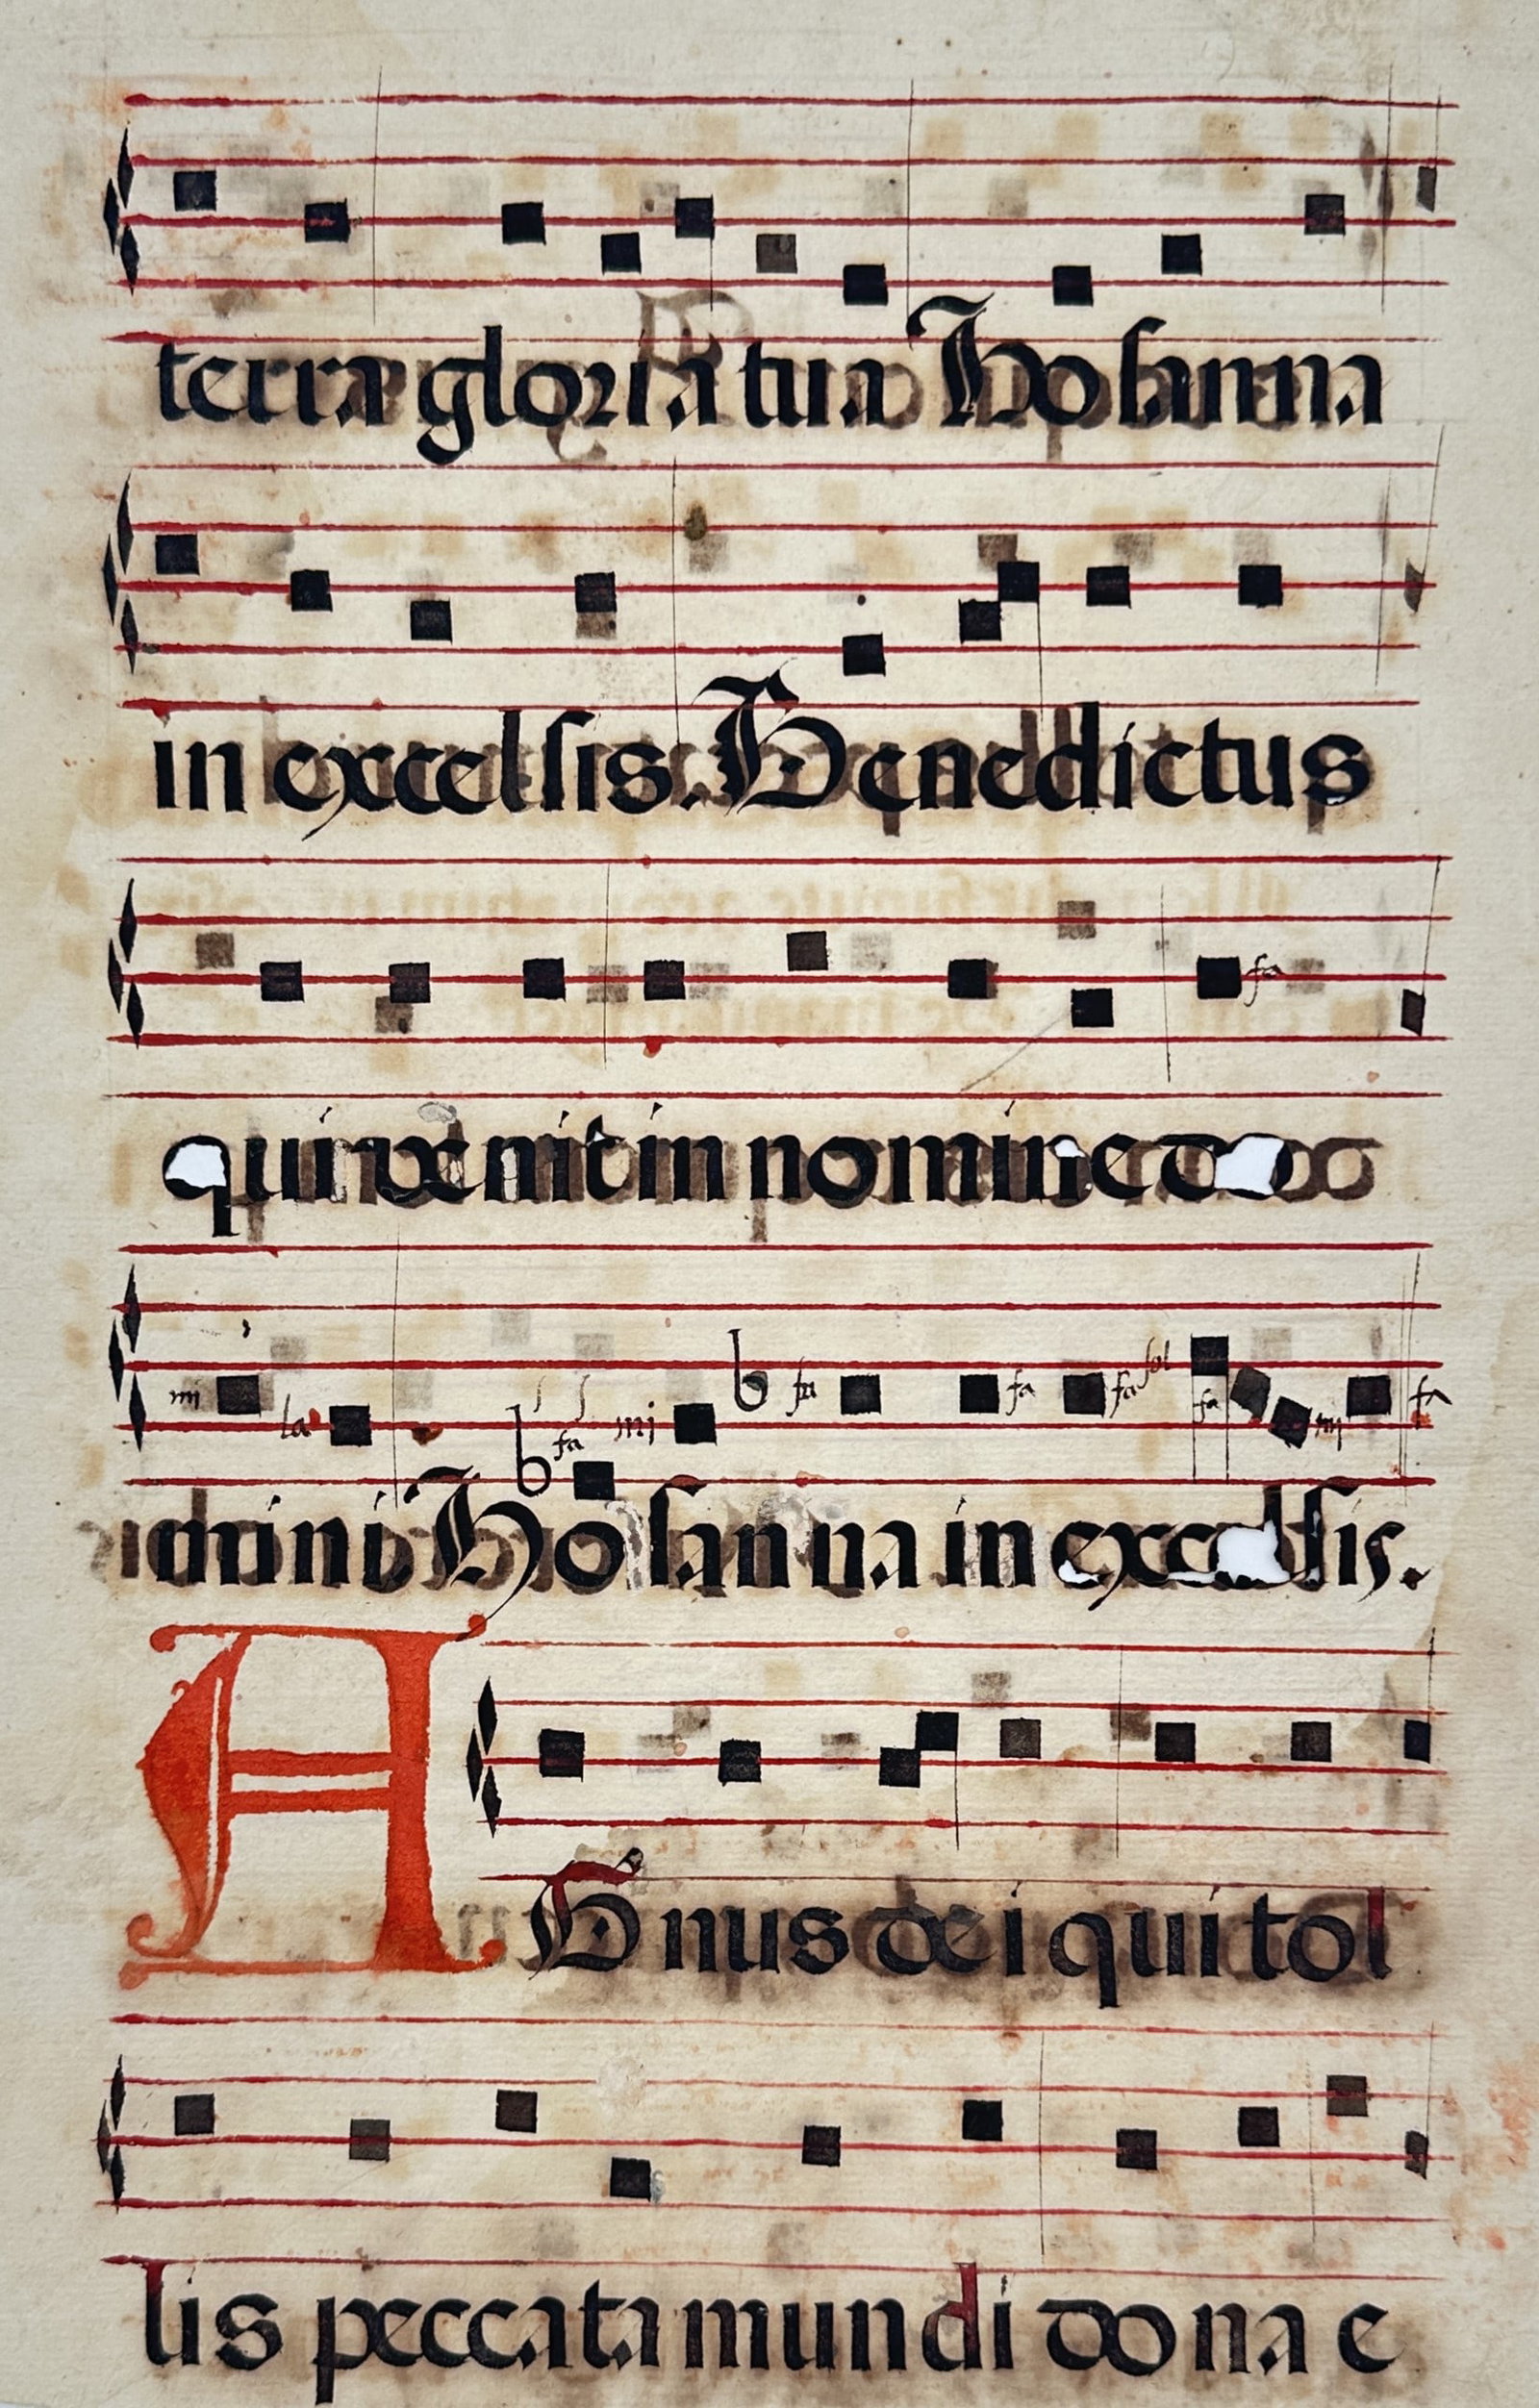 terra gloria tua Hosanna
in excelsis. Benedictus
fa
qui venit in nomine do
mi la b fa mi b fa fa fa sol fa mi fa
mini Hosanna in excelsis.
A
Gnus dei qui tol
lis peccata mundi dona e